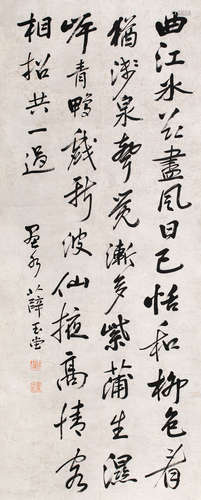 曲江冰欲盡風日已恬和柳色看
猶淺泉聲覺漸多紫蒲生濕
岸青鴨戲新波仙掖高情客
相招共一過
薛玉堂